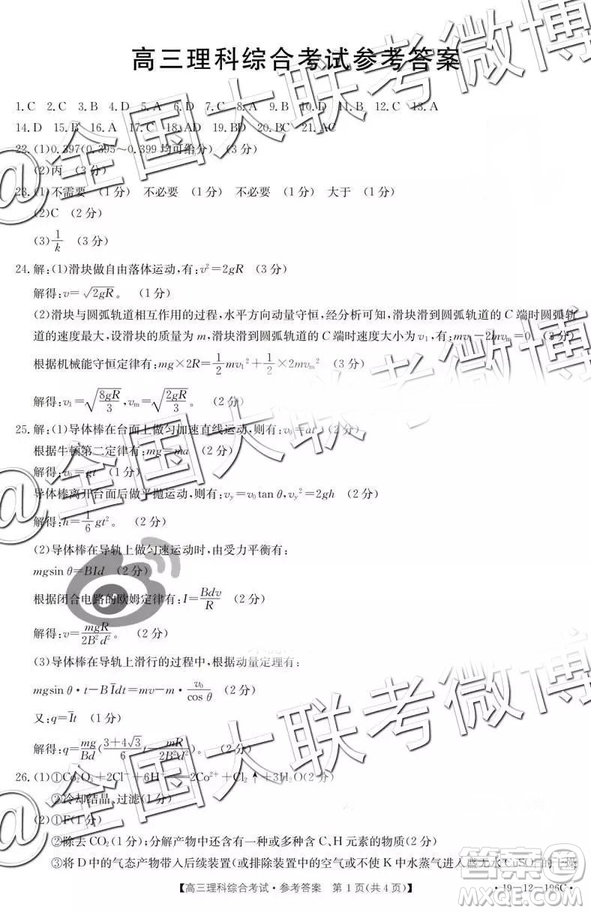 高三理科综合考试参考答案
1.C 2.C 3.B 4.D 5.A 6.D 7.C 8.A 9.D 10.B 11.D 12.B 13.A
14.D 15.B 16.A 17.C 18.C 19.BD 20.BC 21.AC
22.(1)0.397(0.395~0.399均可给分) (3分)
(2)丙 (3分)
23.(1)不需要 (1分) 不必要 (1分) 不必要 (1分) 大于 (1分)
(2)C (2分)
(3)1/k (3分)
24.解:(1)滑块做自由落体运动,有:v²=2gR (3分)
解得:v=√2gR。 (2分)
(2)滑块与圆弧轨道相互作用的过程,水平方向动量守恒,经分析可知,滑块滑到圆弧轨道的C端时圆弧轨
道的速度最大,设滑块的质量为m,滑块滑到圆弧轨道的C端时速度大小为v₁,有:mv₁-2mvₘ=0
根据机械能守恒定律有:mg×2R=1/2mv₁²+1/2×2mvₘ² (3分)
解得:v₁=√(8gR/3),vₘ=√(2gR/3)。 (2分)
25.解:(1)导体棒在台面上做匀加速直线运动,有:v₀=at
根据牛顿第二定律有:mg=ma (2分)
解得:v₀=gt (1分)
导体棒离开台面后做平抛运动,则有:vᵧ=v₀tanθ,vᵧ²=2gh (2分)
解得:h=1/6gt²。 (2分)
(2)导体棒在导轨上做匀速运动时,由受力平衡有:
mgsinθ=BId (2分)
根据闭合电路的欧姆定律有:I=Bdv/R (2分)
解得:v=mgR/2B²d²。 (2分)
(3)导体棒在导轨上滑行的过程中,根据动量定理有:
mgsinθ·t-BĪdt=mv-m·v₀/cosθ (2分)
又:q=Īt (1分)
解得:q=mg/Bd((3+4√3)/6t-mR/2B²d²)。 (2分)
26.(1)①Co₂O₃+2Cl⁻+6H⁺=2Co²⁺+Cl₂↑+3H₂O(2分)
②冷却结晶,过滤(1分)
(2)①F(1分)
②除去CO₂(1分);分解产物中还含有或可能含有C、H元素的物质(2分)
③将D中的气态产物带入后续装置(或排除装置中的
水蒸气进入盛无水CuSO₄的
高三理科综合考试·参考答案 第1页(共4页)
·19-12-196C·
@全国大联考微博
@全国大联考微博
答案圈